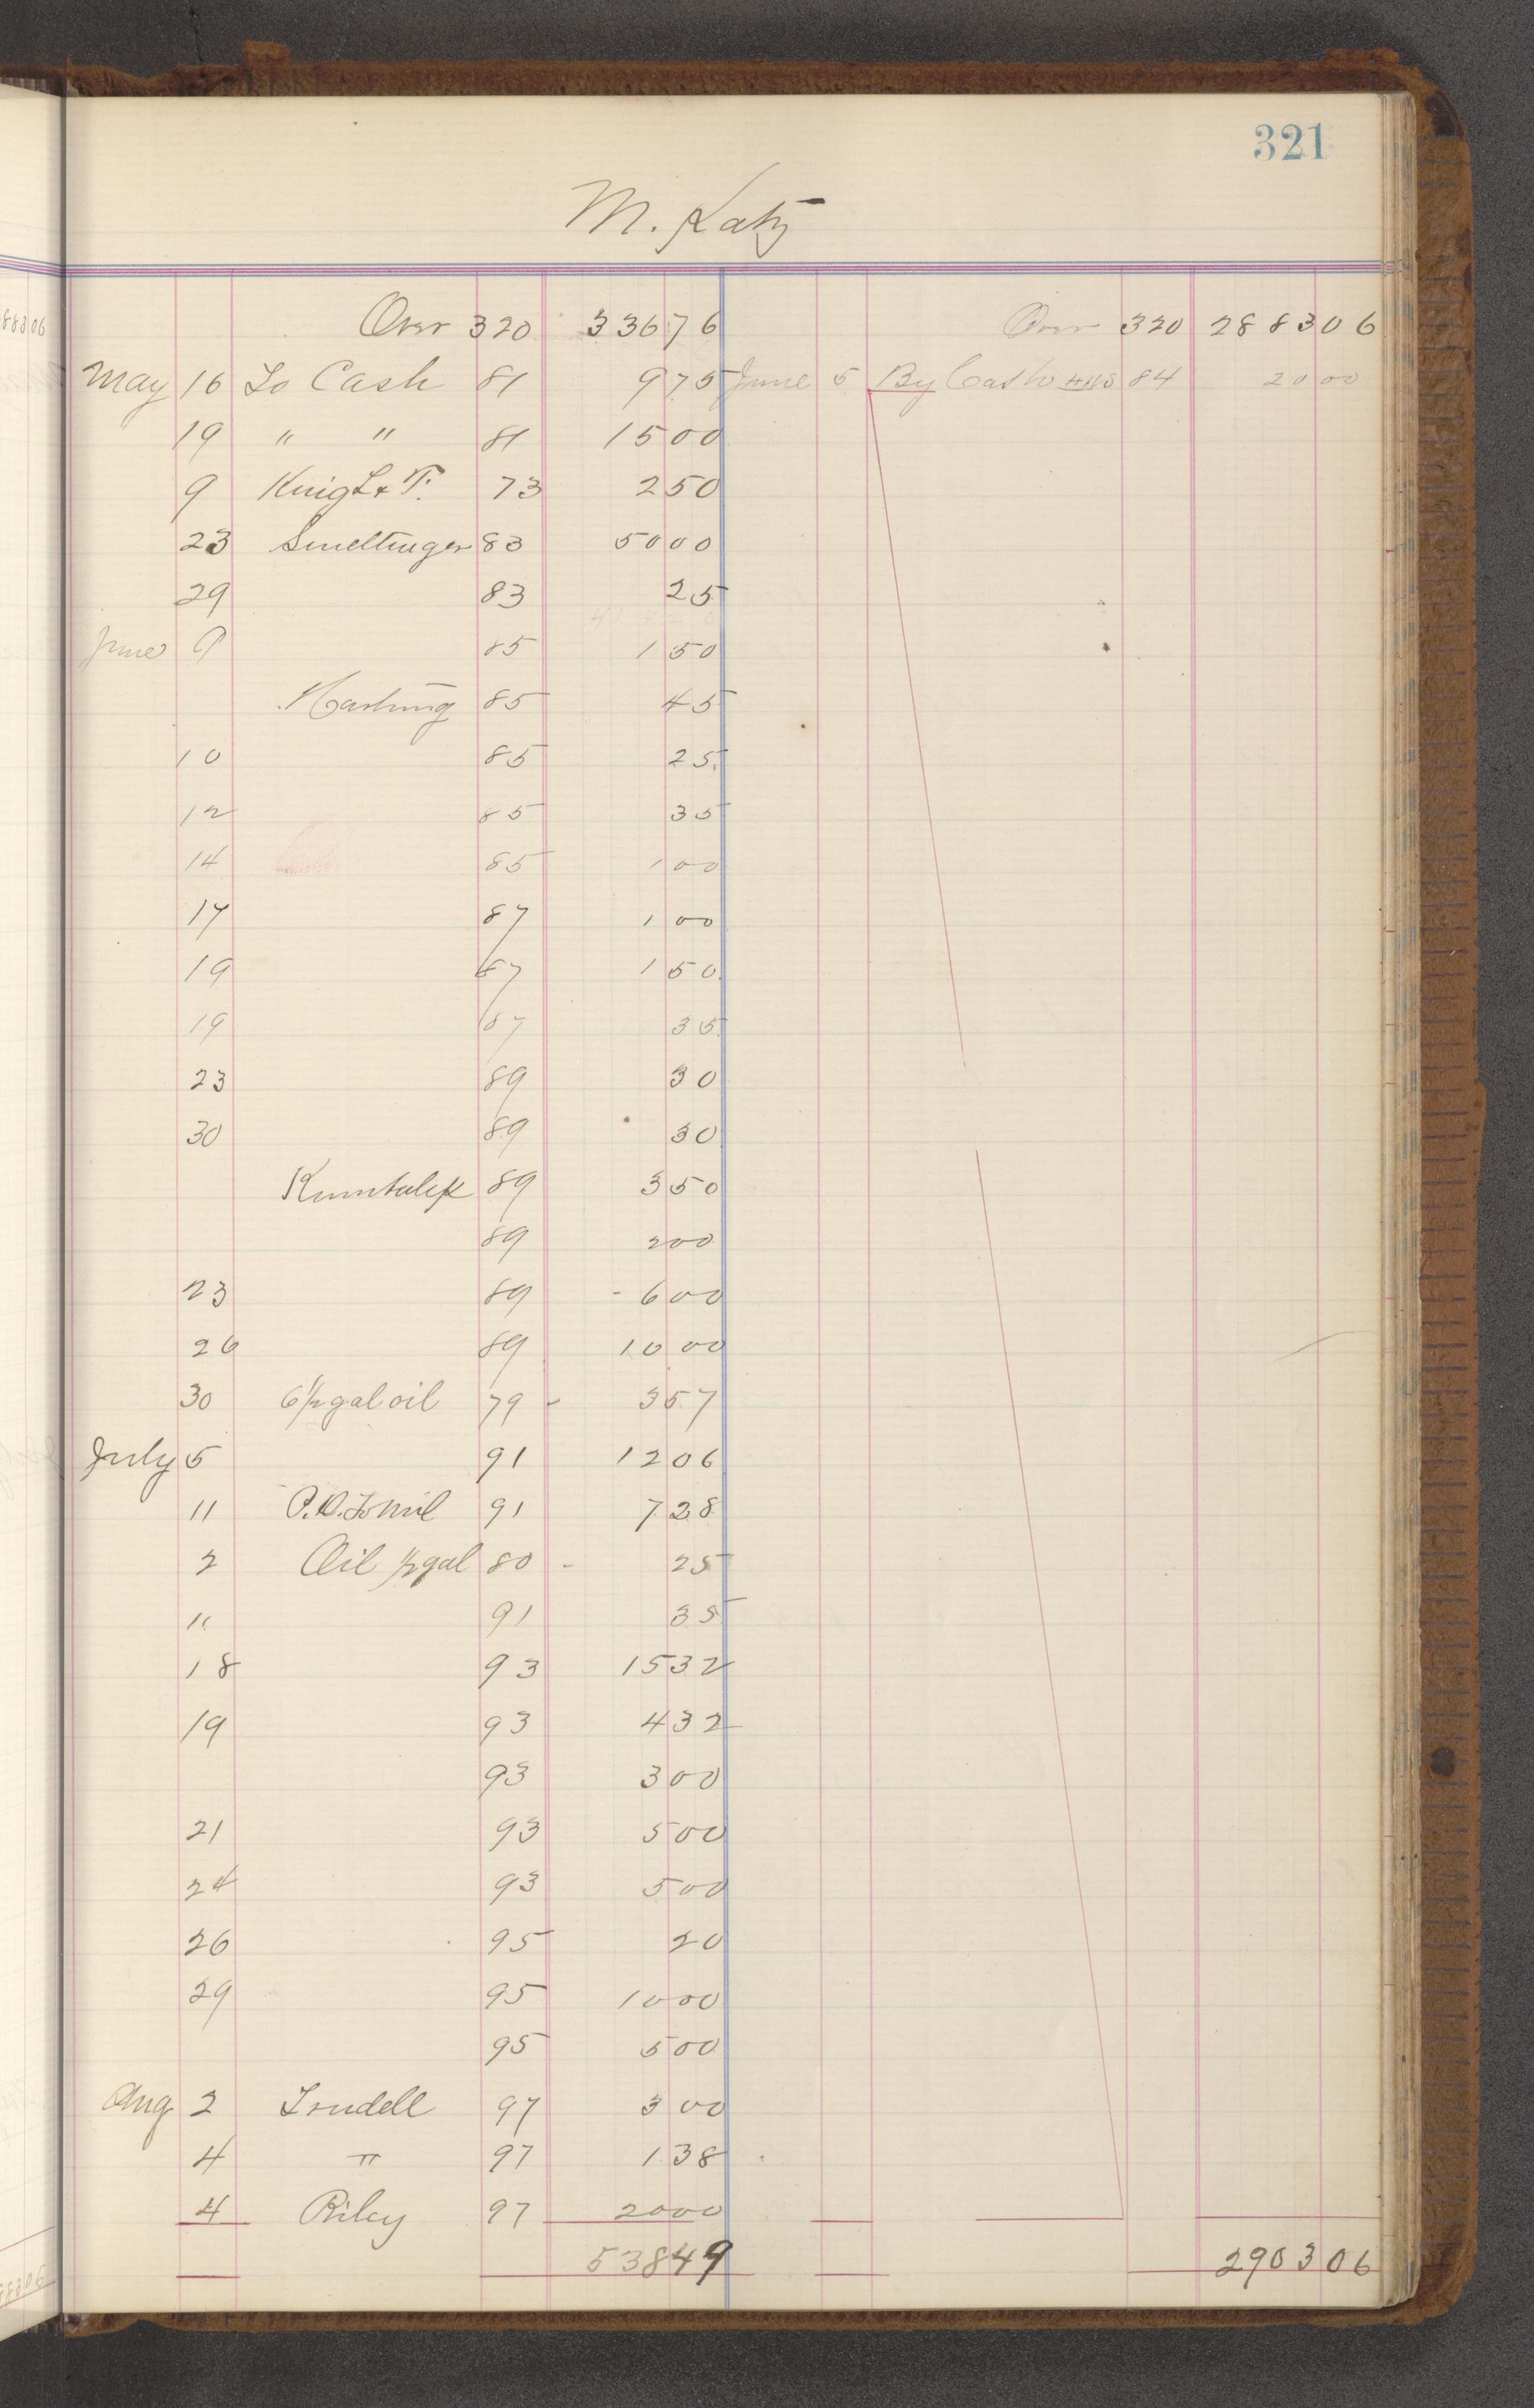 321
M. Katz
88306
Over 320 336 76 Over 320 2883 06
May 16 To Cash 81 9 75 June 5 By Cash 84 20 00
19 " " 81 15 00
9 Knig L & T. 73 2 50
23 Smeltinger 83 50 00
29 83 25
June 9 85 1 50
Hartung 85 45
10 85 25
12 85 35
14 85 1 00
17 87 1 00
19 87 1 50
19 87 35
23 89 30
30 89 30
89 3 50
89 2 00
23 89 - 6 00
26 89 10 00
30 6 1/2 gal oil 79 - 3 57
July 5 91 12 06
11 91 7 28
2 Oil 1/2 gal 80 - 25
" 91 35
18 93 15 32
19 93 4 32
93 3 00
21 93 5 00
24 93 5 00
26 95 20
29 95 10 00
95 5 00
Aug 2 97 3 00
4 " 97 1 38
4 Riley 97 20 00
538 49 2903 06